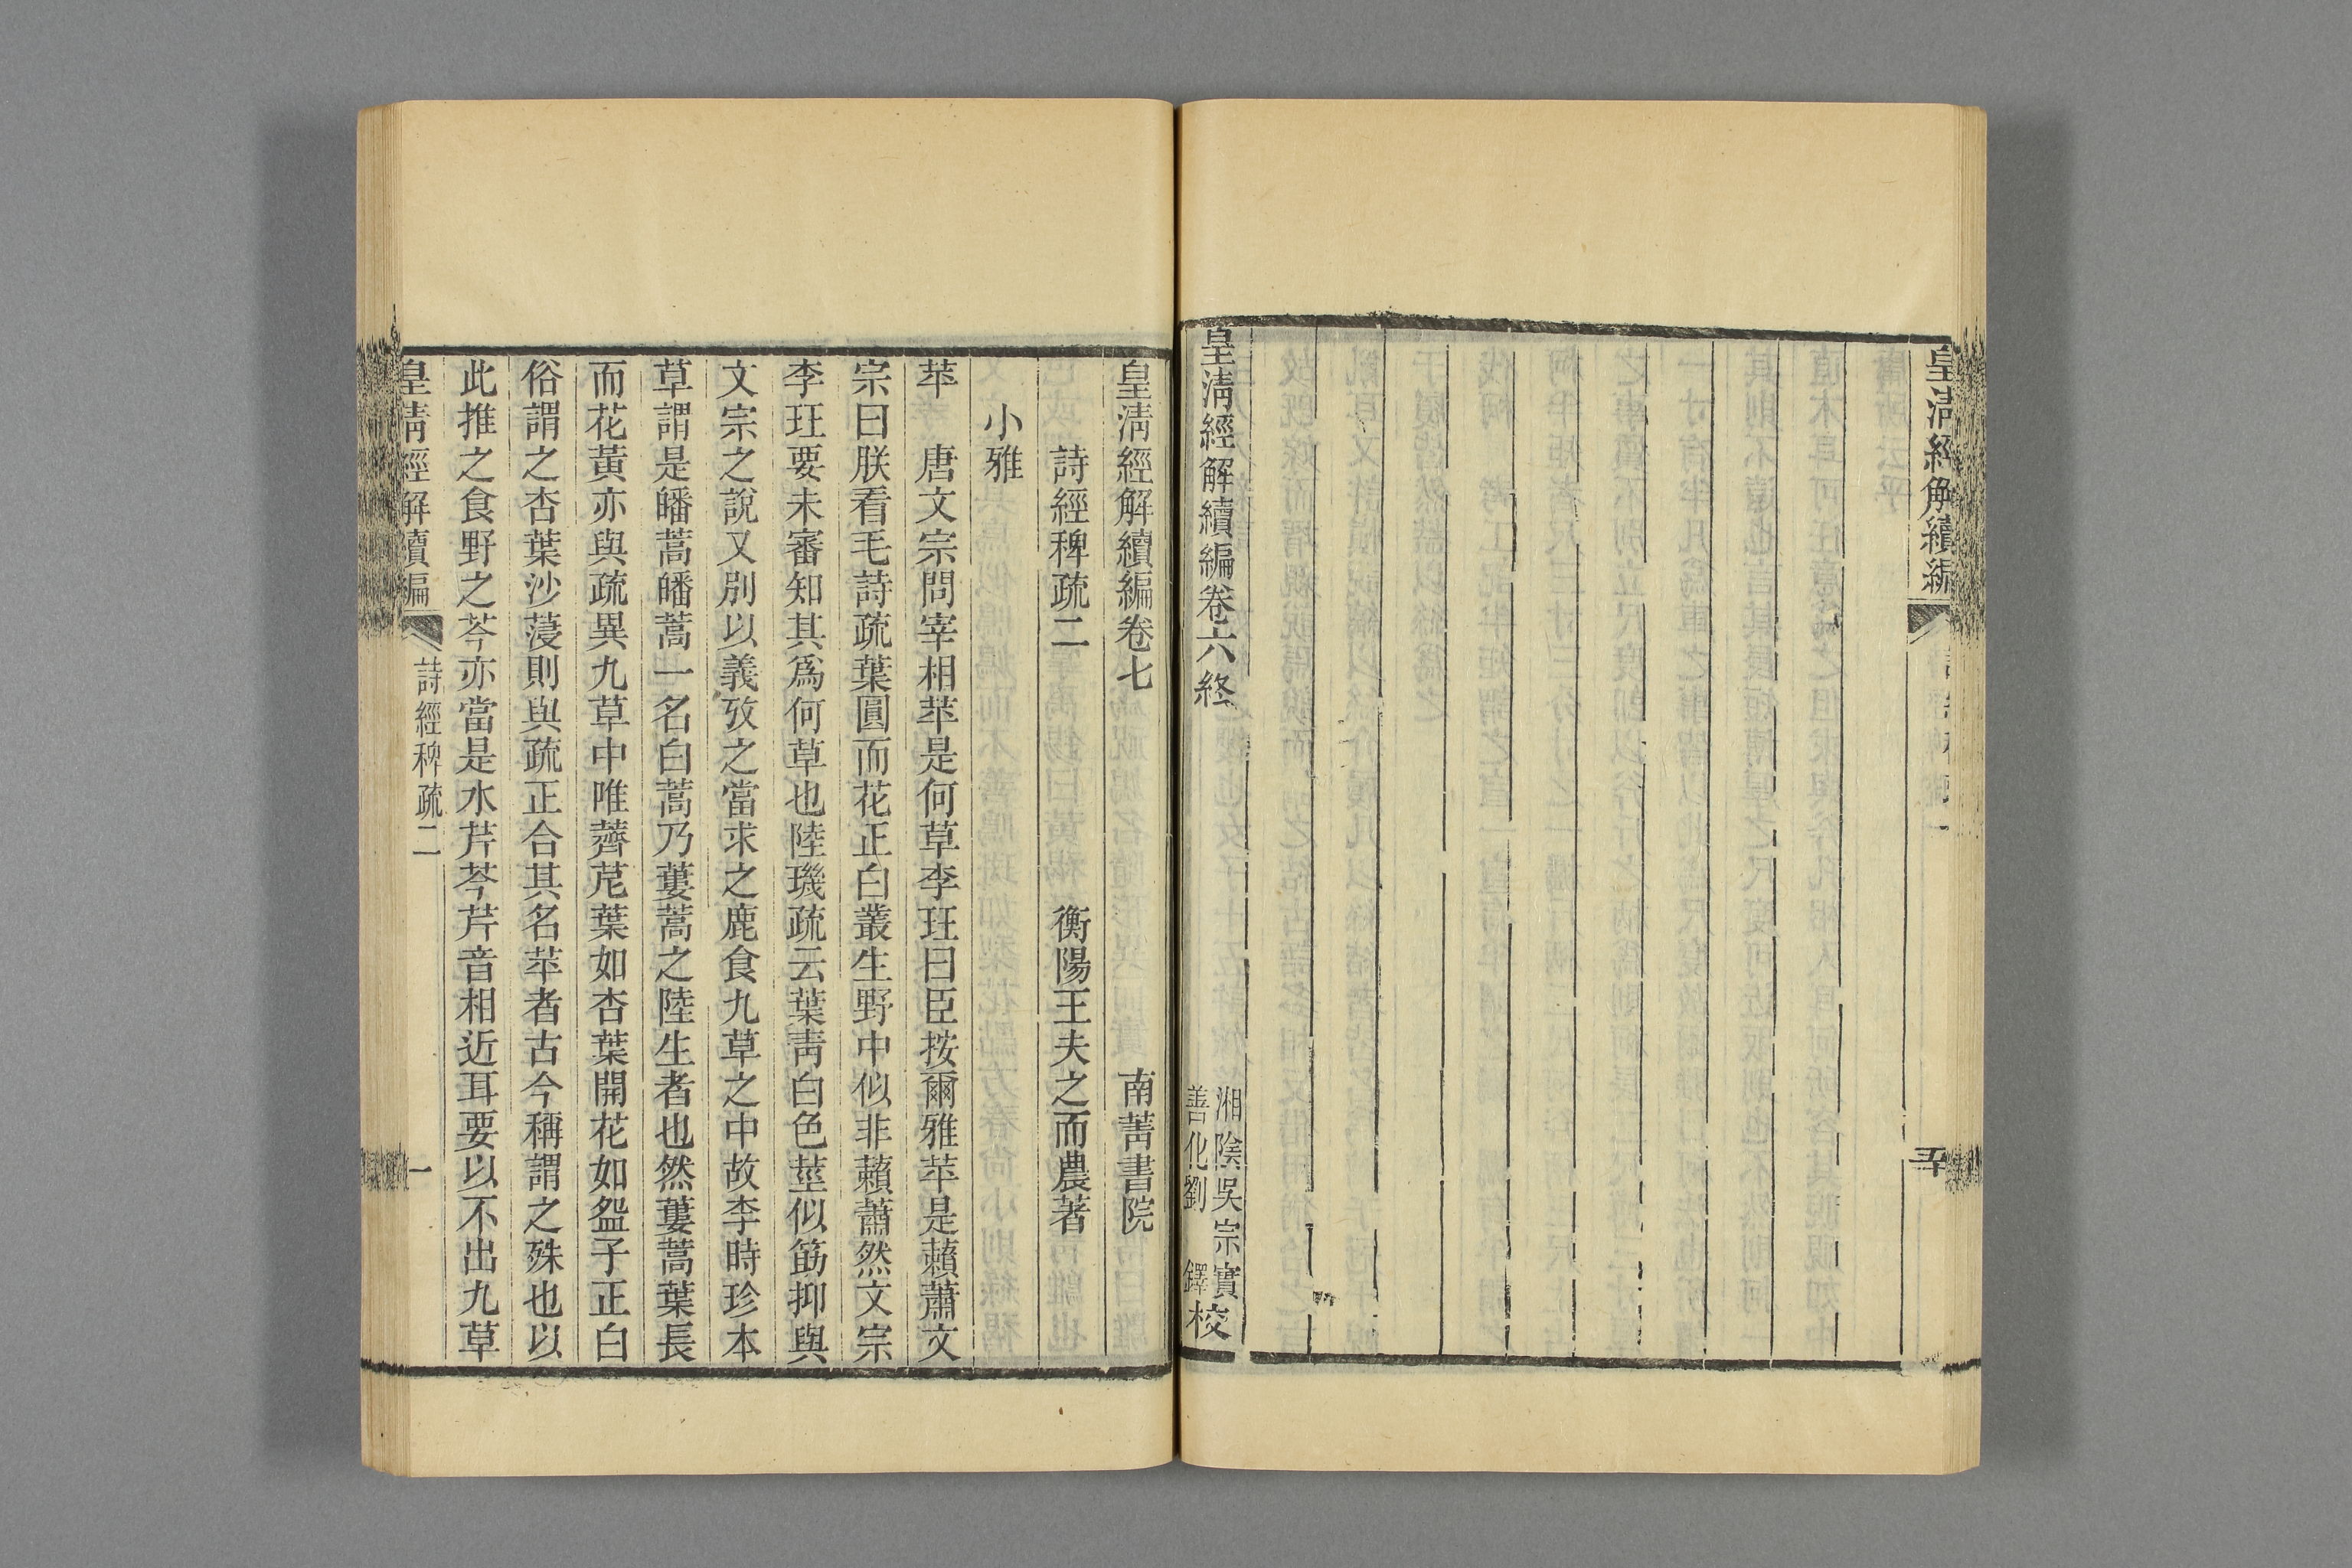 皇清經解續編
五十
皇清經解續編卷六終
湘陰吳宗實
善化劉 鐸校
皇清經解續編卷七 南菁書院
詩經稗疏二 衡陽王夫之而農著
小雅
苹 唐文宗問宰相苹是何草李玨曰臣按爾雅苹是藾蕭文
宗曰朕看毛詩疏葉圓而花正白叢生野中似非藾蕭然文宗
李玨要未審知其爲何草也陸璣疏云葉靑白色莖似筯抑與
文宗之說又別以義攷之當求之鹿食九草之中故李時珍本
草謂是皤蒿皤蒿一名白蒿乃蔞蒿之陸生者也然蔞蒿葉長
而花黃亦與疏異九草中唯薺苨葉如杏葉開花如盌子正白
俗謂之杏葉沙蔆則與疏正合其名苹者古今稱謂之殊也以
此推之食野之芩亦當是水芹芩芹音相近耳要以不出九草
皇淸經解續編
詩經稗疏二
一